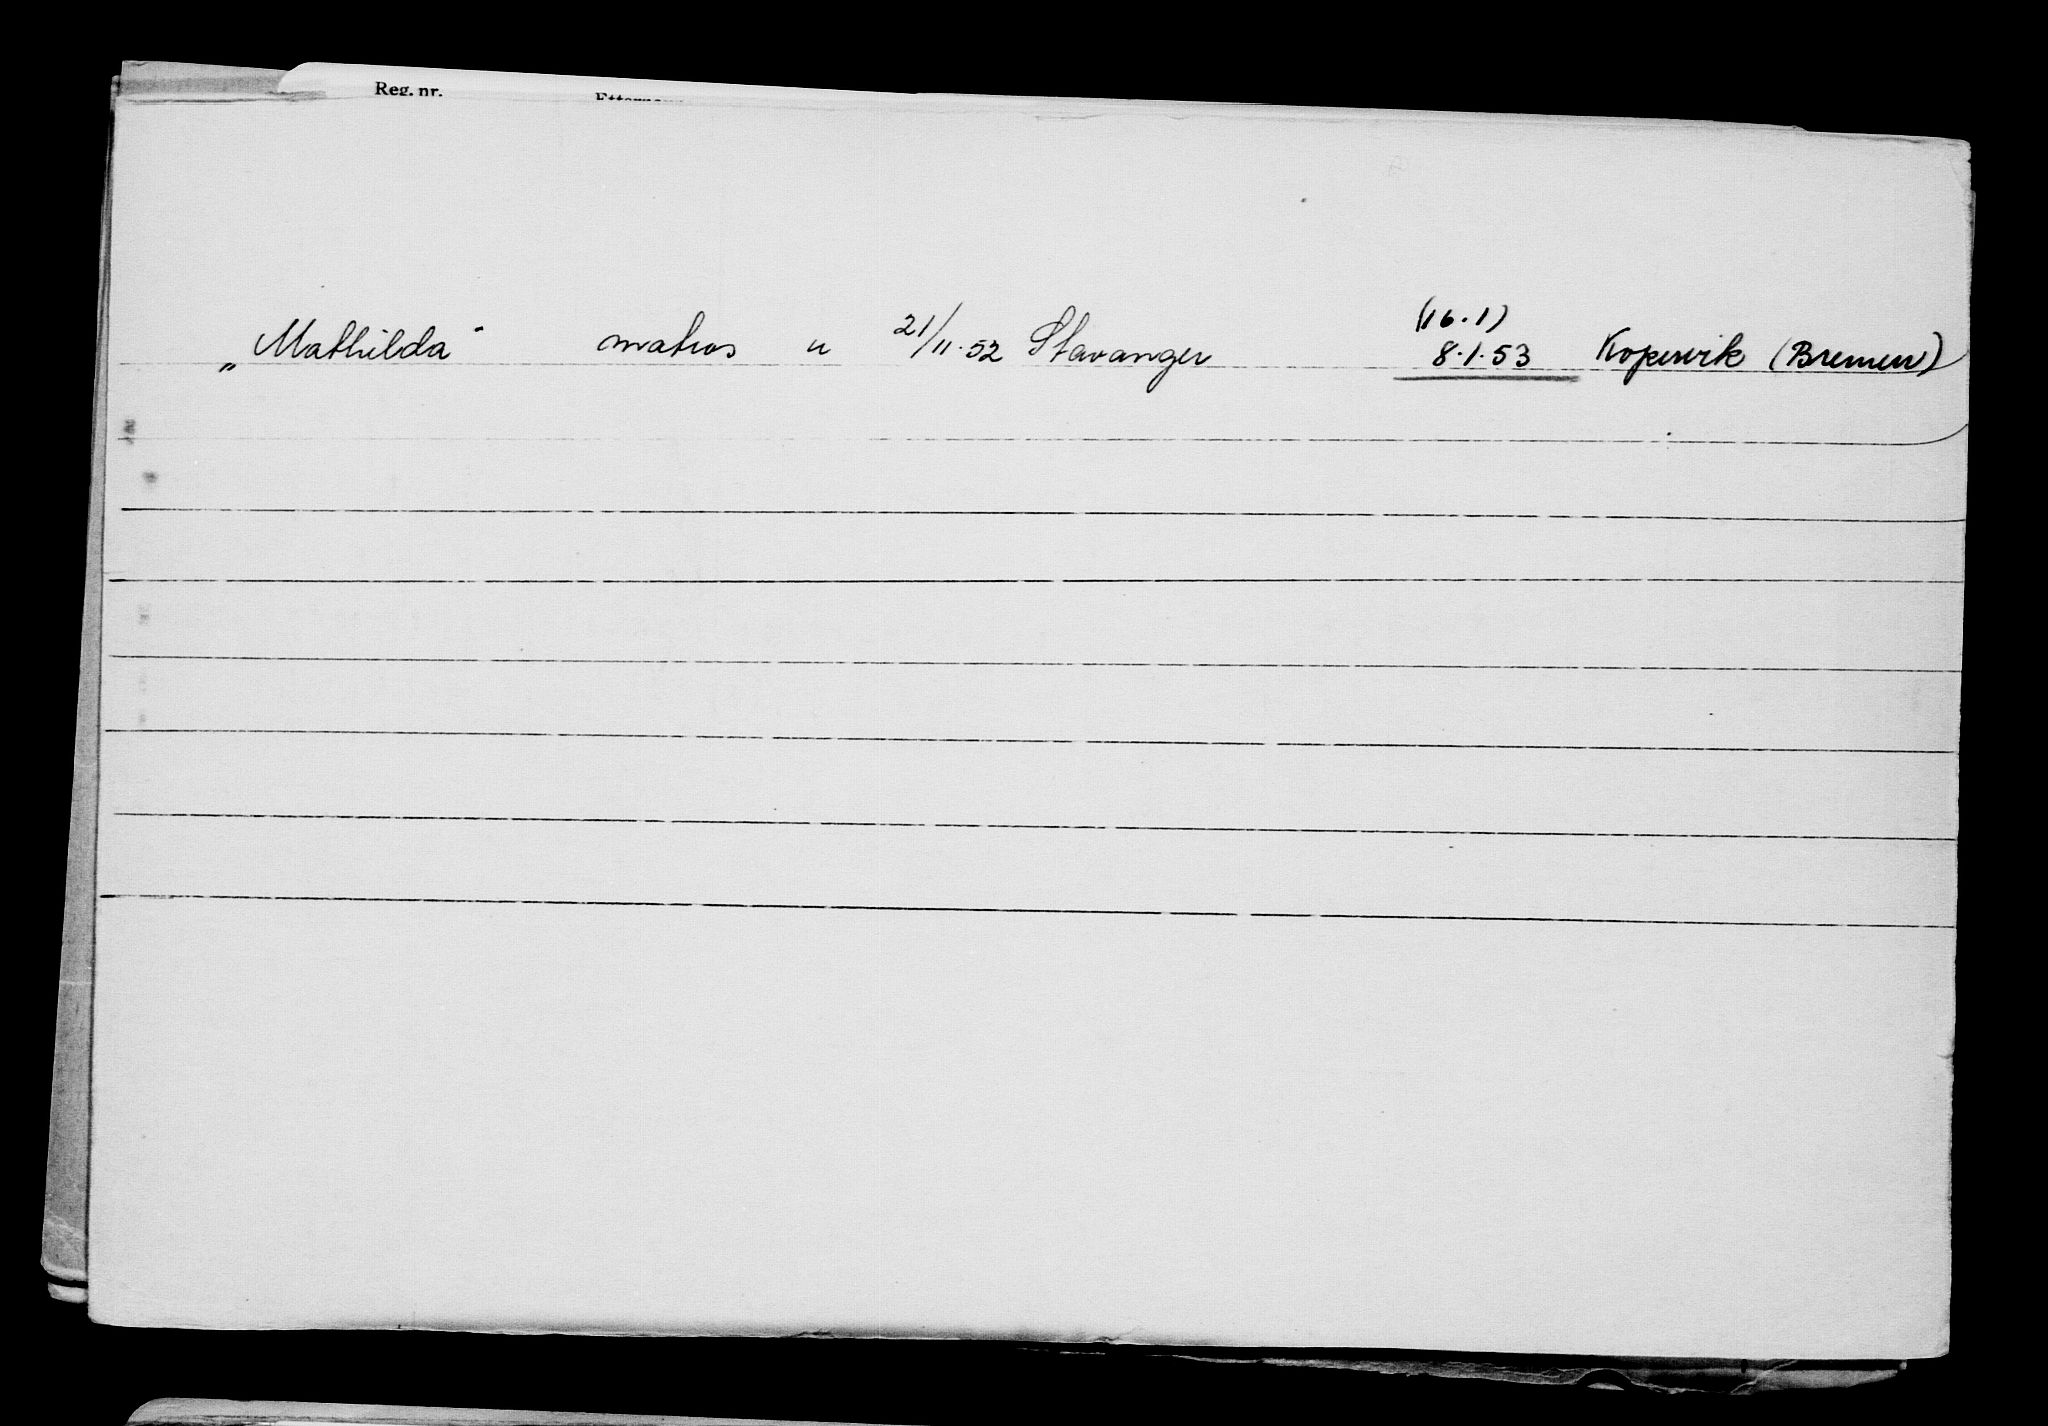 Reg. nr.
Etternavn
(16.1)
„Mathilda" matros u 21/11.52 Stavanger 8.1.53 Kopervik (Bremen)